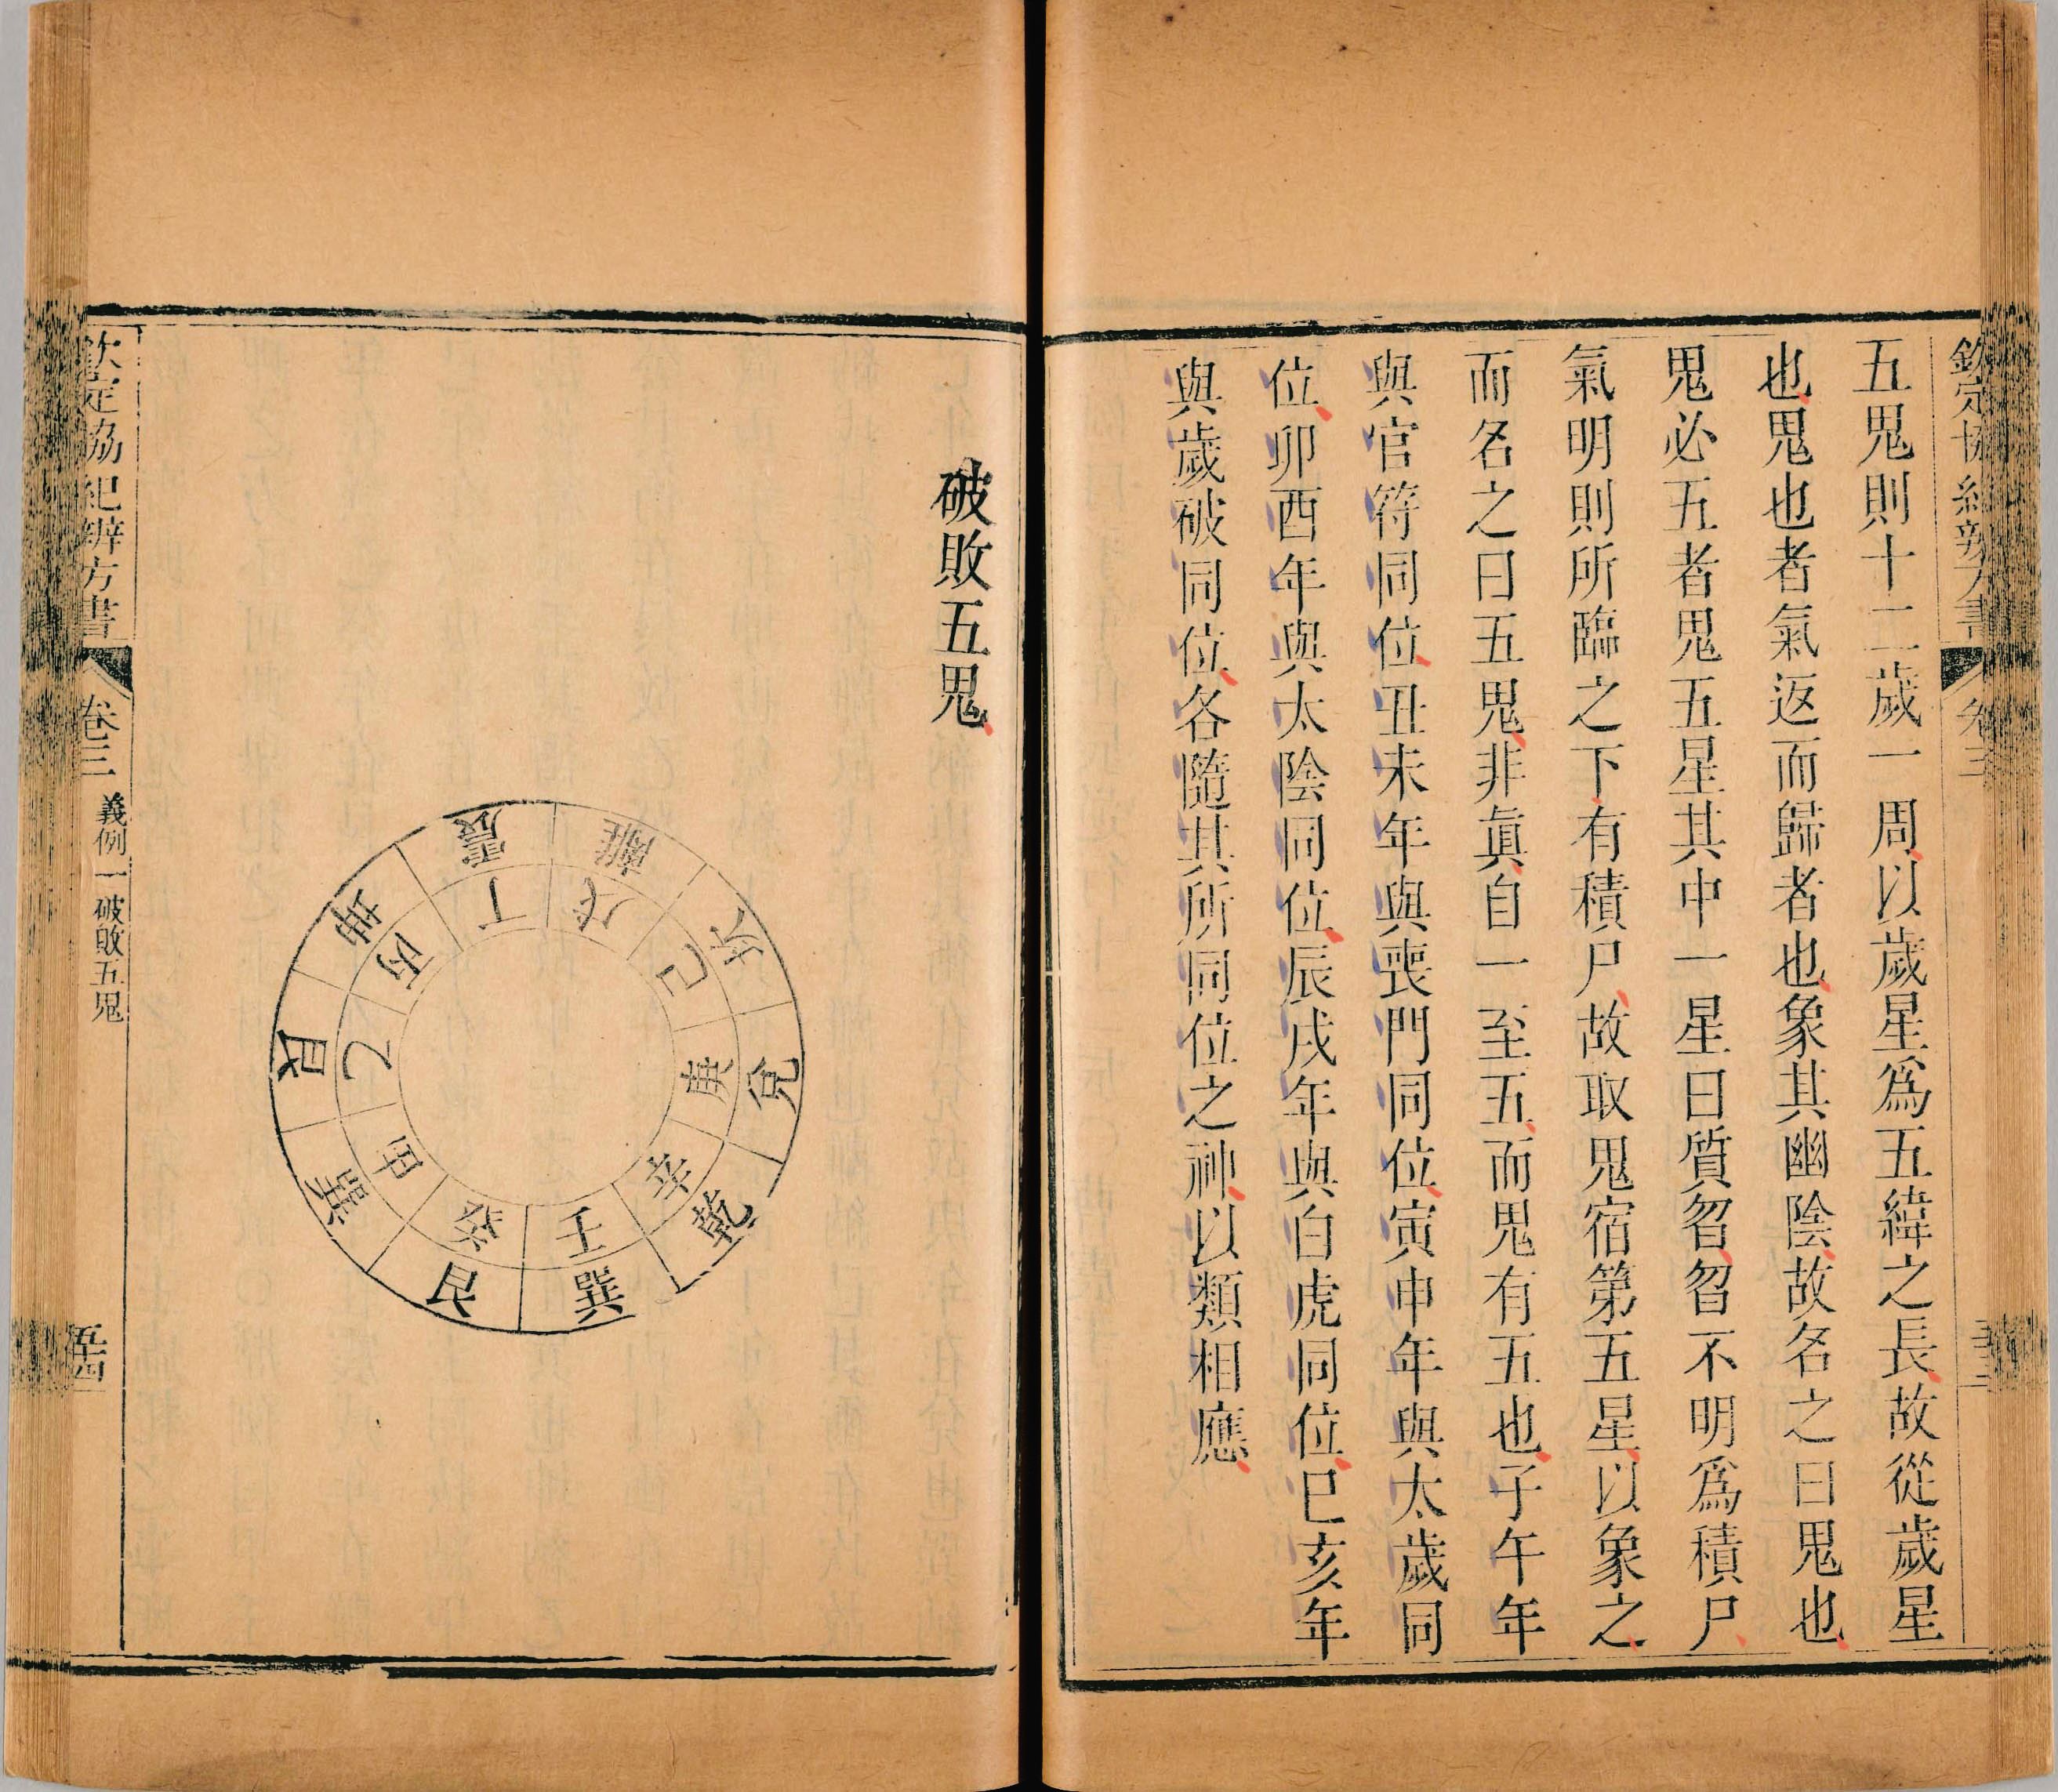 欽定協紀辨方書 卷三
五鬼則十二歲一周以歲星為五緯之長故從歲星
也鬼也者氣返而歸者也象其幽陰故名之曰鬼也
鬼必五者鬼五星其中一星曰質曶曶不明為積尸
氣明則所臨之下有積尸故取鬼宿第五星以象之
而名之曰五鬼非眞自一至五而鬼有五也子午年
與官符同位丑未年與喪門同位寅申年與太歲同
位卯酉年與太陰同位辰戌年與白虎同位巳亥年
與歲破同位各隨其所同位之神以類相應
破敗五鬼
離
坎
兌
乾
巽
艮
巽
艮
坤
震
戊
己
庚
辛
壬
癸
甲
乙
丙
丁
欽定協紀辨方書 卷三 義例一 破敗五鬼 五十四